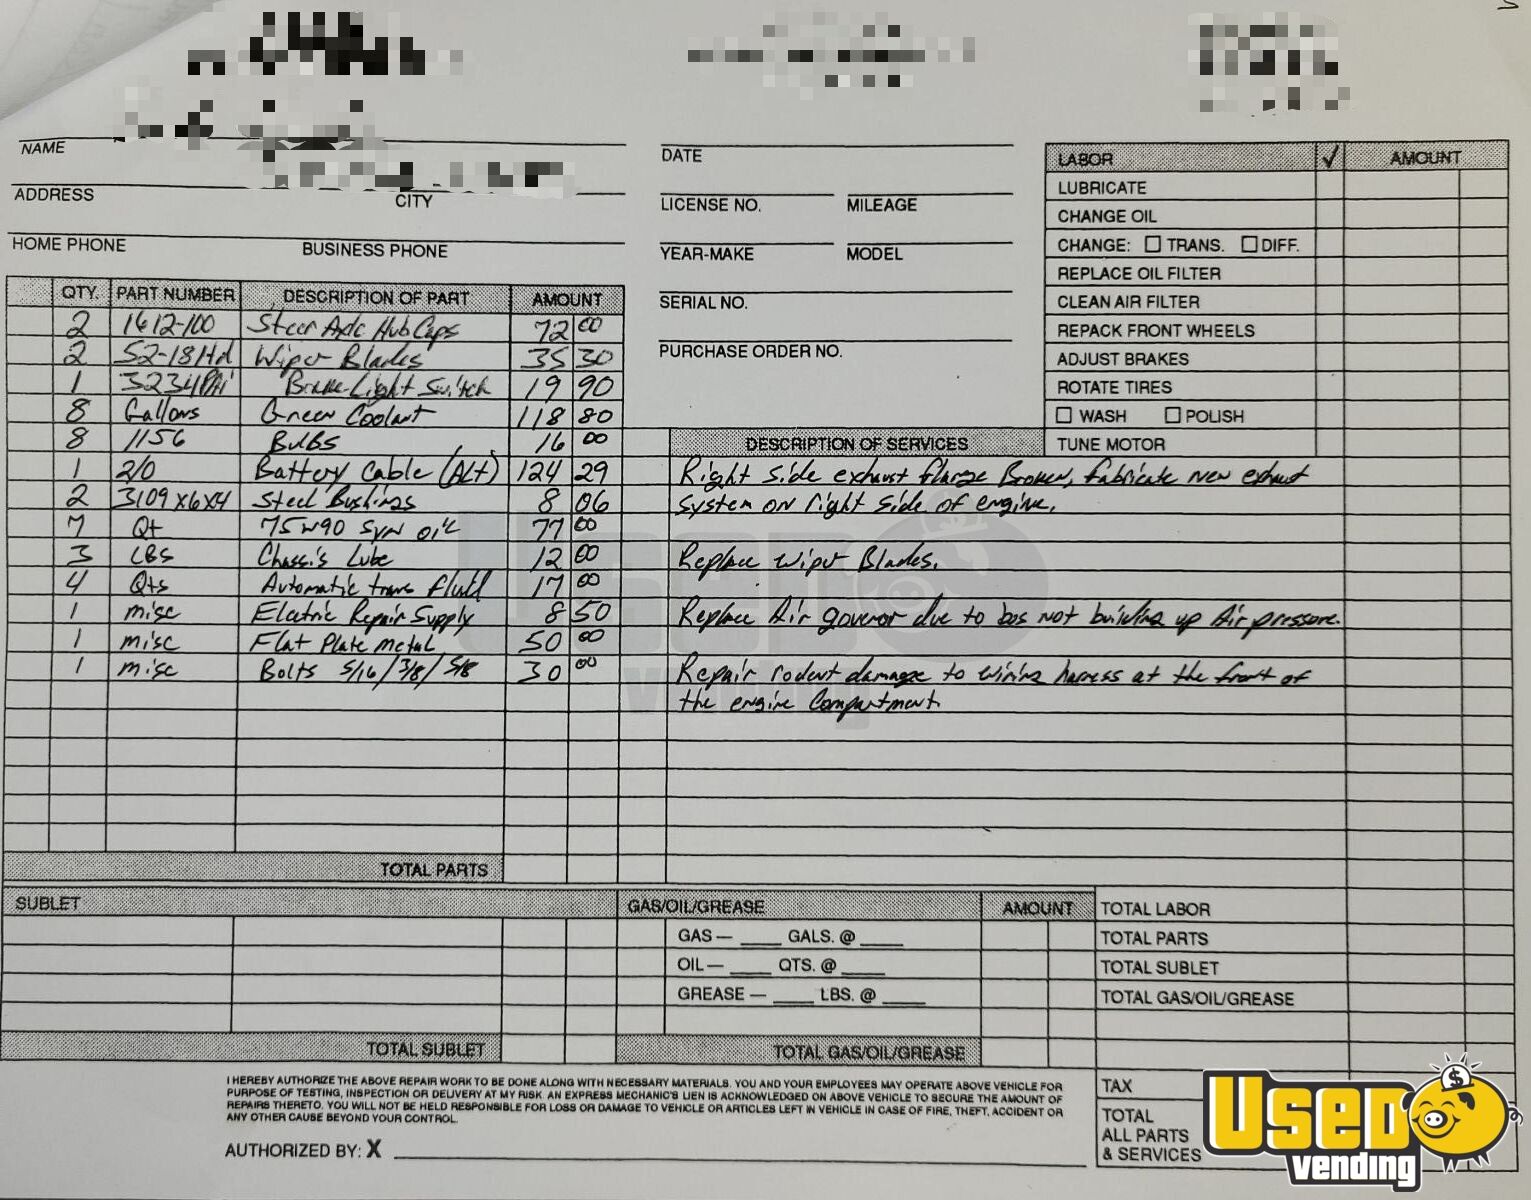 NAME
DATE
LABOR ✓ AMOUNT
LUBRICATE
ADDRESS CITY
LICENSE NO. MILEAGE
CHANGE OIL
HOME PHONE BUSINESS PHONE
YEAR-MAKE MODEL
CHANGE: ☐ TRANS. ☐ DIFF.
REPLACE OIL FILTER
SERIAL NO.
CLEAN AIR FILTER
REPACK FRONT WHEELS
PURCHASE ORDER NO.
ADJUST BRAKES
ROTATE TIRES
☐ WASH ☐ POLISH
TUNE MOTOR
QTY. PART NUMBER DESCRIPTION OF PART AMOUNT
2 1612-100 Steer Axle Hub Caps 72 00
2 52-18Hd Wiper Blades 35 30
1 Brake Light Switch 19 90
8 Gallons Green Coolant 118 80
8 1156 Bulbs 16 00
1 2/0 Battery Cable (Alt) 124 29
2 3109x6x4 Steel Bushings 8 06
7 Qt 75w90 Syn oil 77 00
3 LBS Chassis Lube 12 00
4 Qts Automatic trans fluid 17 00
1 misc Electric Repair Supply 8 50
1 misc Flat Plate metal 50 00
1 misc Bolts 5/16 / 3/8 / 5/8 30 00
TOTAL PARTS
DESCRIPTION OF SERVICES
Right side exhaust flange Broken, fabricate new exhaust
system on right side of engine.
Replace Wiper Blades.
Replace Air governor due to bus not building up Air pressure.
Repair rodent damage to wiring harness at the front of
the engine Compartment.
SUBLET
TOTAL SUBLET
GAS/OIL/GREASE AMOUNT
GAS — ____ GALS. @ ____
OIL — ____ QTS. @ ____
GREASE — ____ LBS. @ ____
TOTAL GAS/OIL/GREASE
TOTAL LABOR
TOTAL PARTS
TOTAL SUBLET
TOTAL GAS/OIL/GREASE
TAX
TOTAL
ALL PARTS
& SERVICES
I HEREBY AUTHORIZE THE ABOVE REPAIR WORK TO BE DONE ALONG WITH NECESSARY MATERIALS. YOU AND YOUR EMPLOYEES MAY OPERATE ABOVE VEHICLE FOR
PURPOSE OF TESTING, INSPECTION OR DELIVERY AT MY RISK. AN EXPRESS MECHANIC'S LIEN IS ACKNOWLEDGED ON ABOVE VEHICLE TO SECURE THE AMOUNT OF
REPAIRS THERETO. YOU WILL NOT BE HELD RESPONSIBLE FOR LOSS OR DAMAGE TO VEHICLE OR ARTICLES LEFT IN VEHICLE IN CASE OF FIRE, THEFT, ACCIDENT OR
ANY OTHER CAUSE BEYOND YOUR CONTROL.
AUTHORIZED BY: X
Used
vending
Used
vending